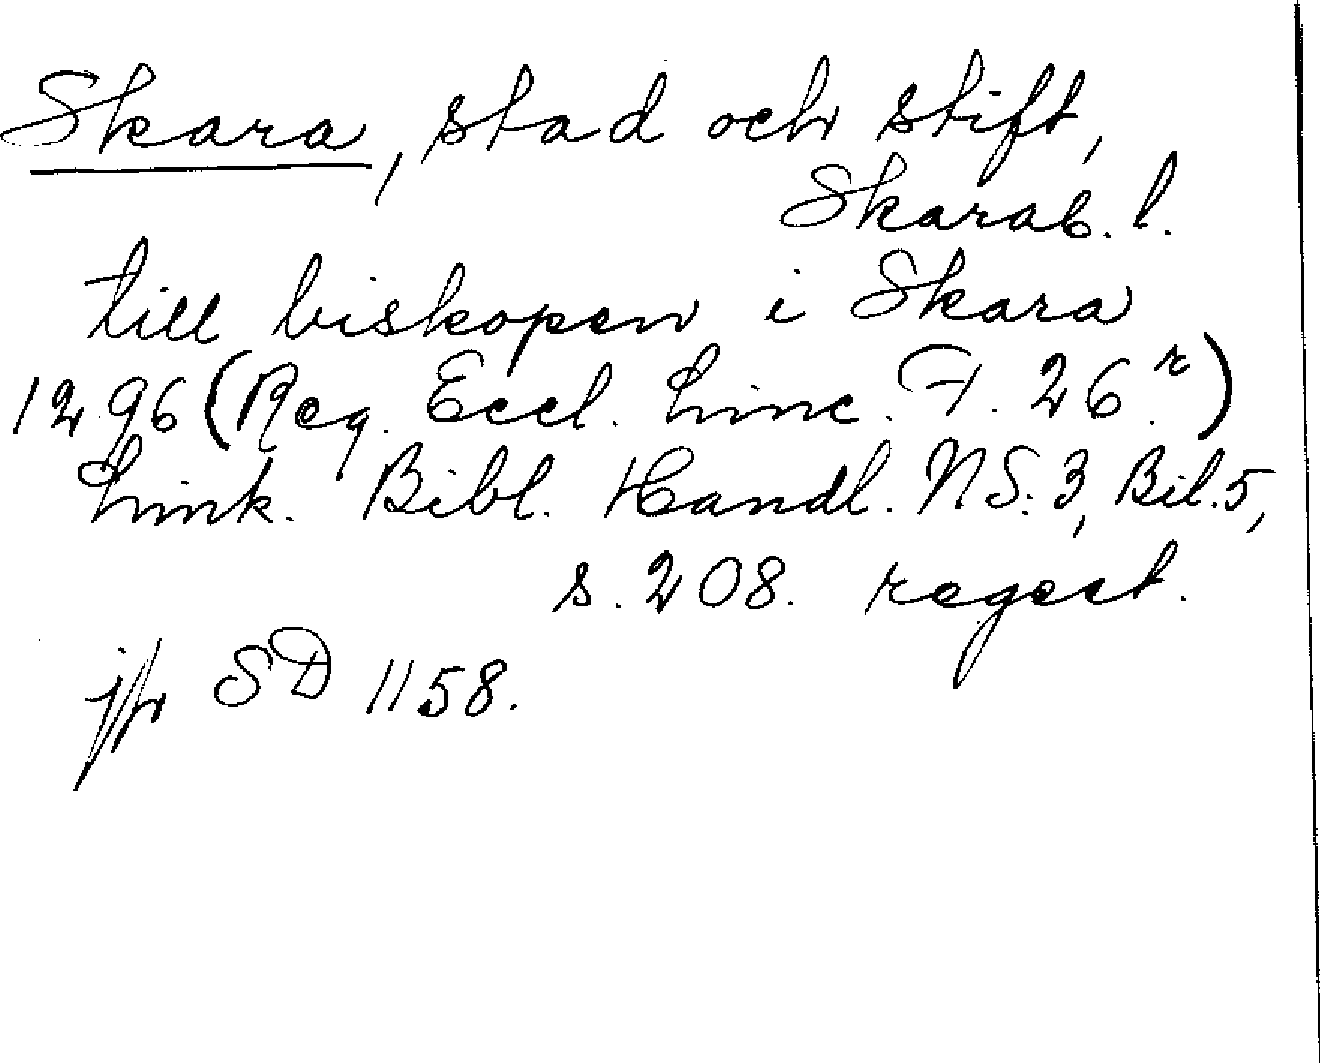 Skara, stad och stift,
Skarab. l.
till biskopen i Skara
1296 (Reg. Eccl. Linc. F. 26.r)
Link. Bibl. Handl. NS. 3, Bil. 5,
s. 208. regest.
jfr SD 1158.